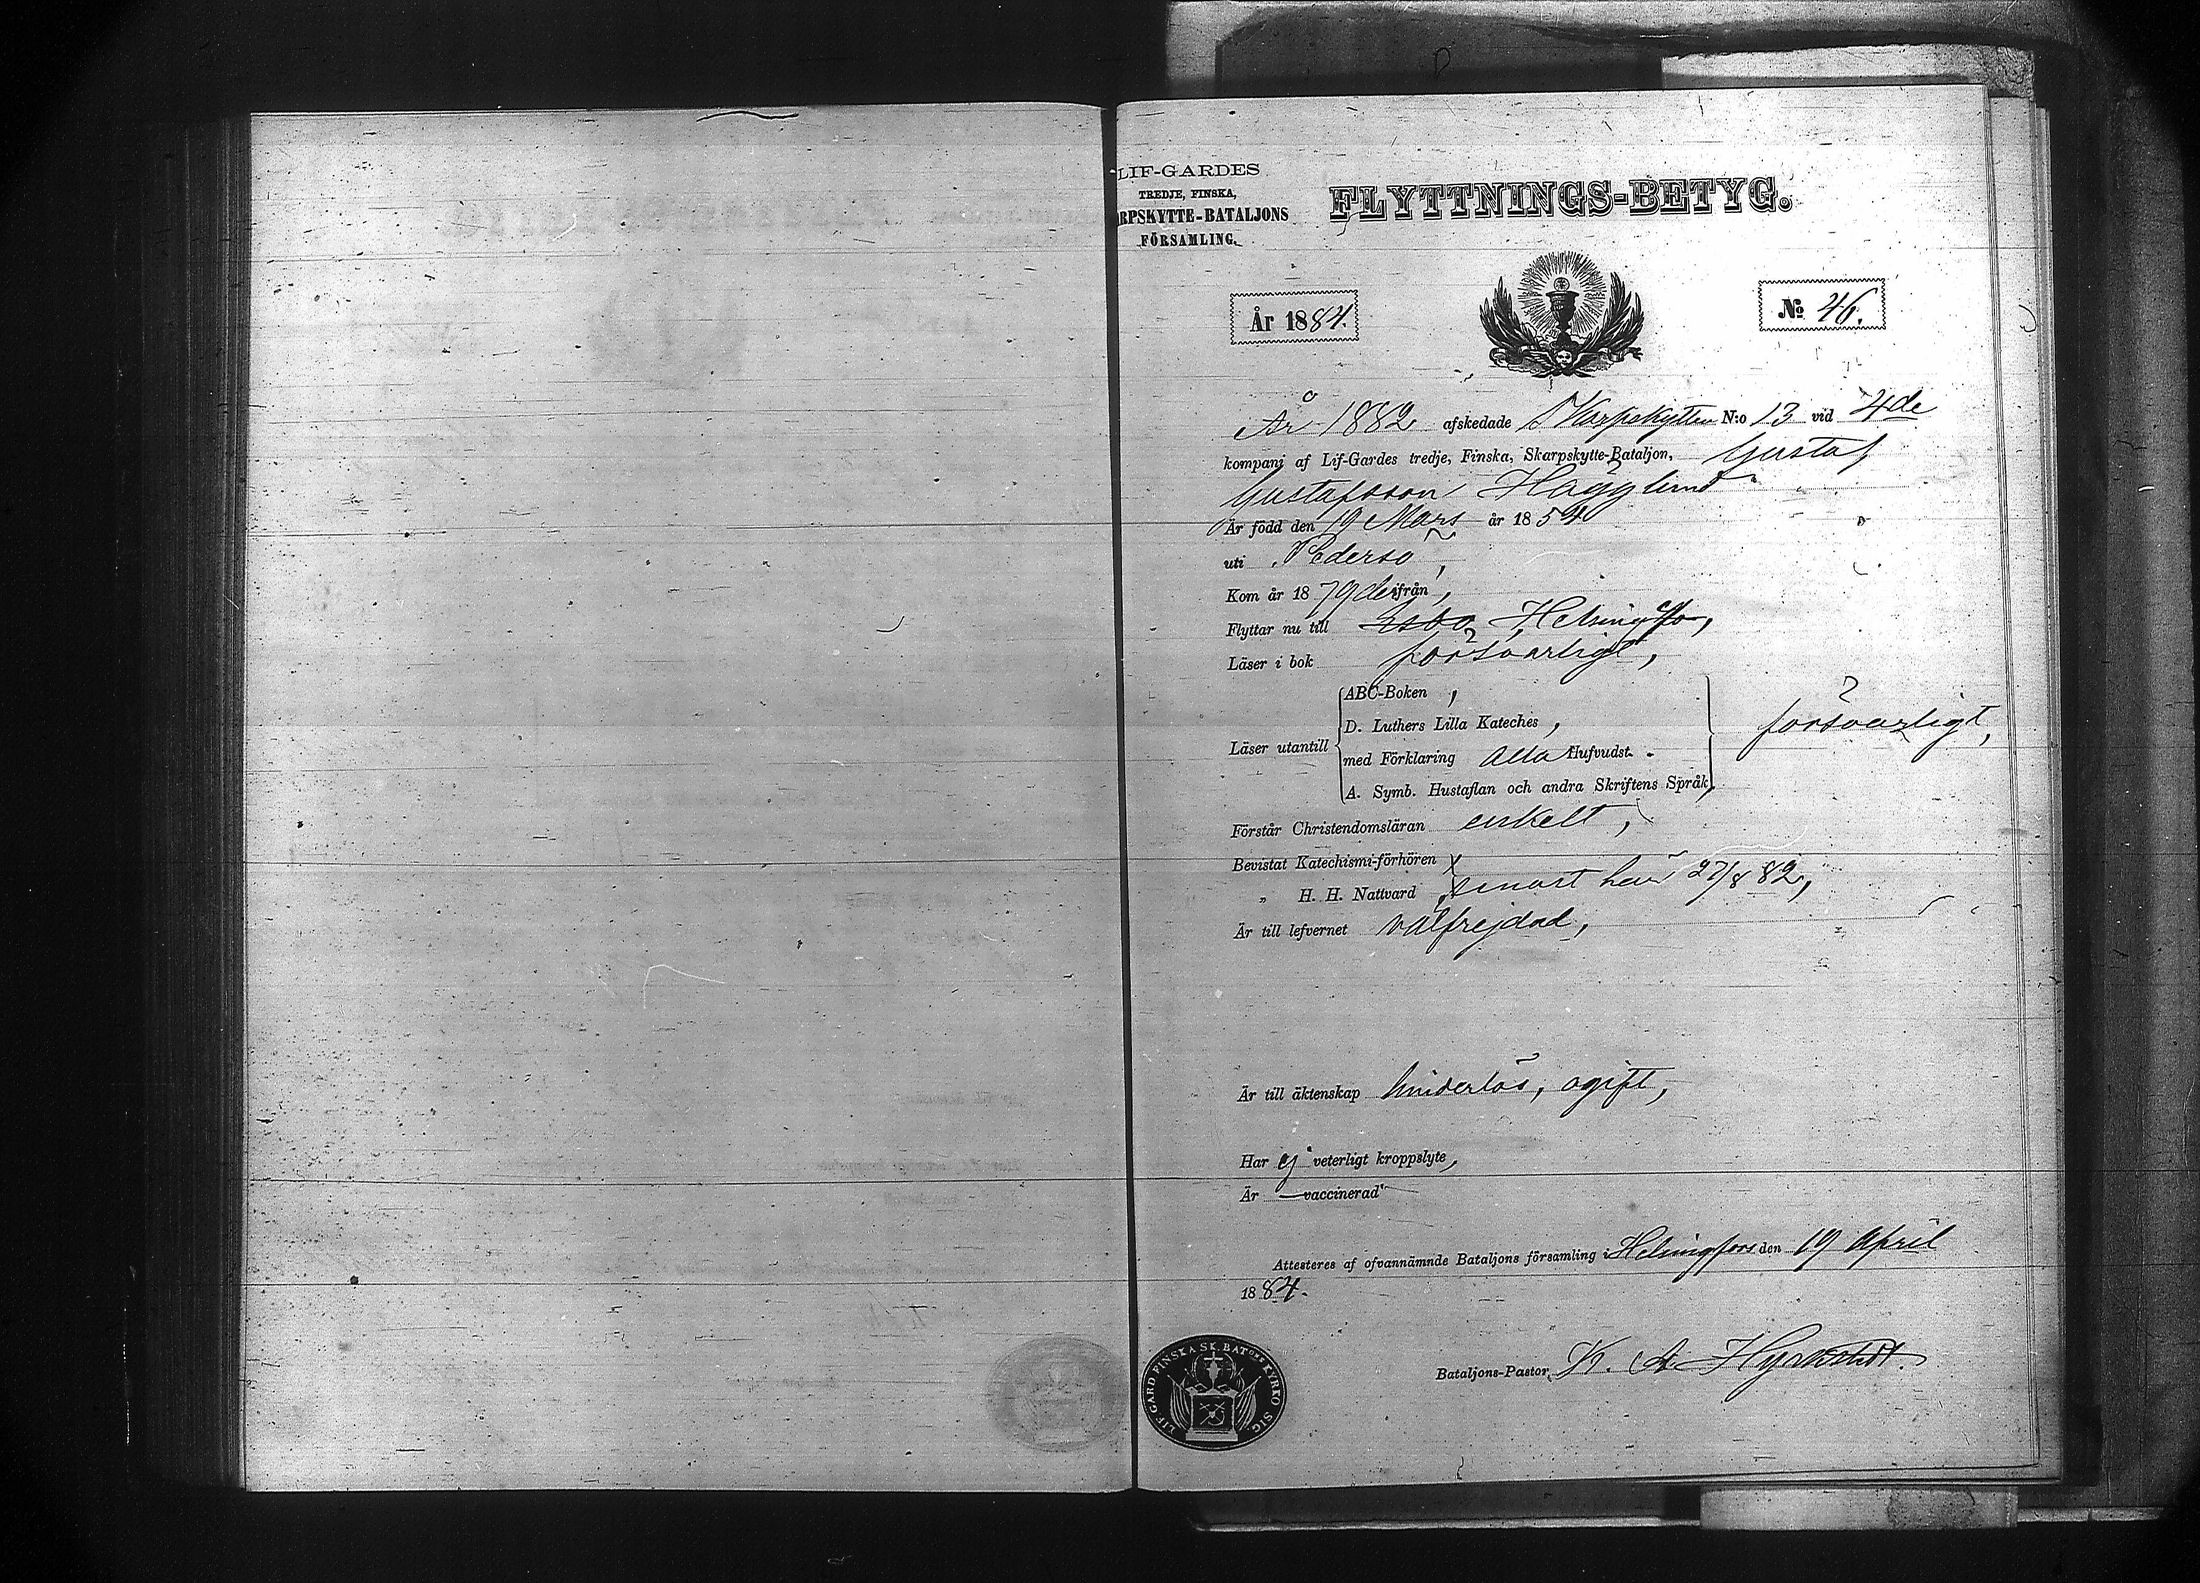 LIF-GARDES
TREDJE, FINSKA,
RPSKYTTE-BATALJONS
FÖRSAMLING.
FLYTTNINGS-BETYG.
År 1884.
№ 46.
År 1882 afskedade Skarpskytten N:o 13 vid 4de
kompani af Lif-Gardes tredje, Finska, Skarpskytte-Bataljon, Gustaf
Gustafsson Hägglund
Är född den 19 Mars år 1854
uti Pedersö,
Kom år 1879 derifrån,
Flyttar nu till Esbo, Helsingfors,
Läser i bok försvarligt,
Läser utantill
ABC-Boken,
D. Luthers Lilla Kateches,
med Förklaring alla Hufvudst.
A. Symb. Hustaflan och andra Skriftens Språk,
försvarligt,
Förstår Christendomsläran enkelt,
Bevistat Katechismi-förhören
„ H. H. Nattvard senast här 27/8 82,
Är till lefvernet välfrejdad,
Är till äktenskap hinderlös, ogift,
Har ej veterligt kroppslyte,
Är vaccinerad
Attesteres af ofvannämnde Bataljons församling i Helsingfors den 19 April
1884.
Bataljons-Pastor, K. A.
LIF-GARD FINSKA SK. BATONS KYRKO SIG.